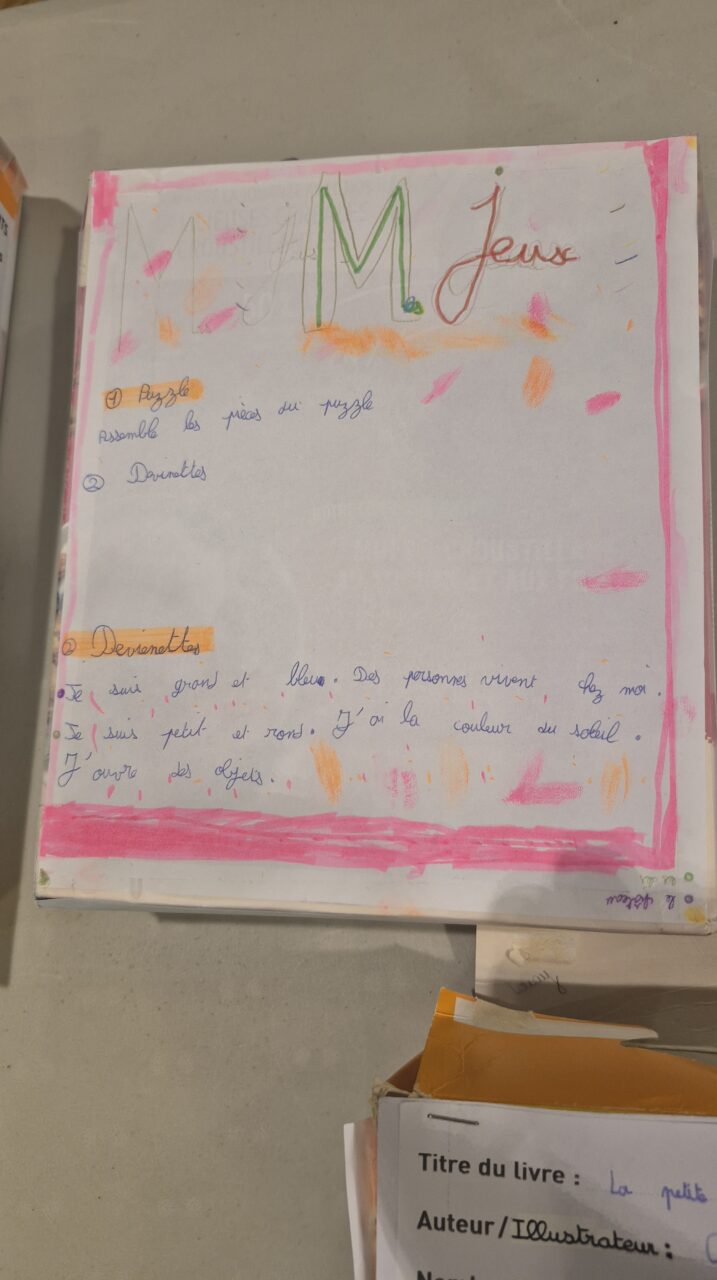 M. Jeux
① Puzzle
Assemble les pièces du puzzle
② Devinettes
② Devienettes
Je suis grand et bleu. Des personnes vivent chez moi.
Je suis petit et rond. J'ai la couleur du soleil.
J'ouvre des objets.
la clé
le château
Titre du livre : La petite
Auteur/Illustrateur :